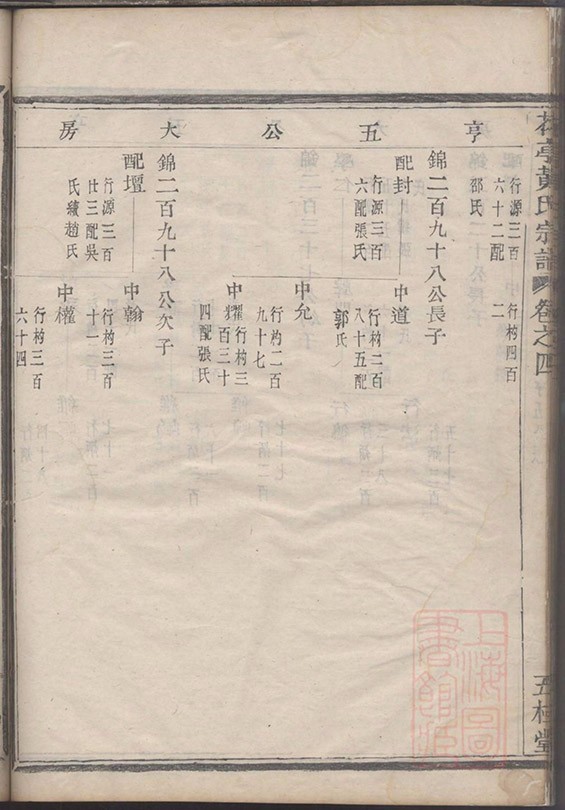 黃氏宗譜 卷之四
五桂堂
亨五公大房
行源三百
六十二配
邵氏
行枃四百
二
錦二百九十八公長子
配封
行源三百
六配張氏
中道
行枃二百
八十五配
郭氏
中允
行枃二百
九十七
中
行枃三
百三十
四配張氏
錦二百九十八公次子
配壇
行源三百
廿三配吳
氏續趙氏
中翰
行枃三百
十一
中權
行枃三百
六十四
上海圖
書館所